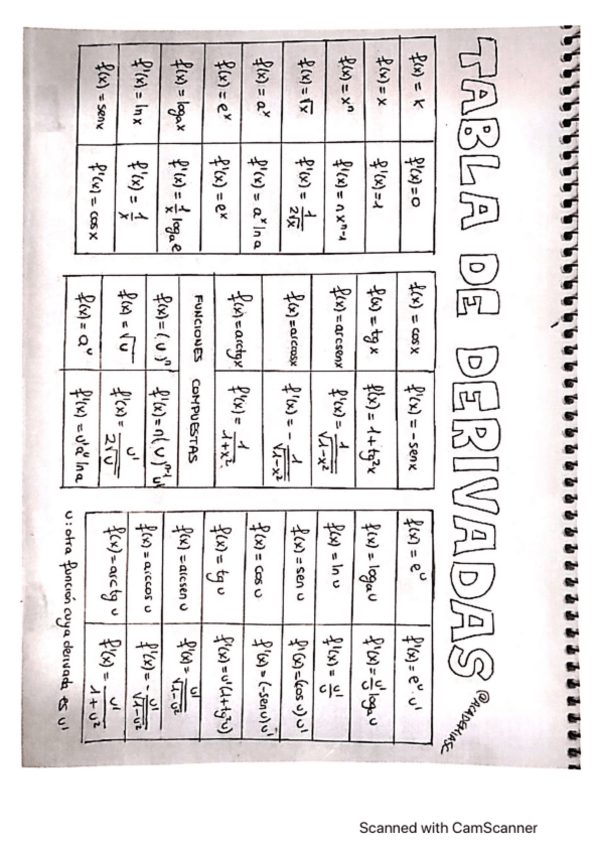 TABLA DE DERIVADAS
f(x) = k f'(x) = 0
f(x) = x f'(x) = 1
f(x) = xⁿ f'(x) = n xⁿ⁻¹
f(x) = √x f'(x) = 1/2√x
f(x) = aˣ f'(x) = aˣ ln a
f(x) = eˣ f'(x) = eˣ
f(x) = logₐx f'(x) = 1/x logₐe
f'(x) = ln x f'(x) = 1/x
f(x) = senx f'(x) = cos x
f(x) = cosx f'(x) = -senx
f(x) = tgx f'(x) = 1 + tg²x
f(x) = arcsenx f'(x) = 1/√1-x²
f(x) = arccosx f'(x) = - 1/√1-x²
f(x) = arctgx f'(x) = 1/1+x²
FUNCIONES COMPUESTAS
f(x) = (u)ⁿ f'(x) = n(u)ⁿ⁻¹ u'
f(x) = √u f'(x) = u'/2√u
f(x) = aᵘ f'(x) = u' aᵘ ln a
f(x) = eᵘ f'(x) = eᵘ · u'
f(x) = logₐu f'(x) = u'/u logₐu
f(x) = ln u f'(x) = u'/u
f(x) = sen u f'(x) = (cos u) u'
f(x) = cos u f'(x) = (-sen u) u'
f(x) = tg u f'(x) = u'(1+tg²u)
f(x) = arcsen u f'(x) = u'/√1-u²
f(x) = arccos u f'(x) = - u'/√1-u²
f(x) = arctg u f'(x) = u'/1+u²
u: otra función cuya derivada es u'
Scanned with CamScanner